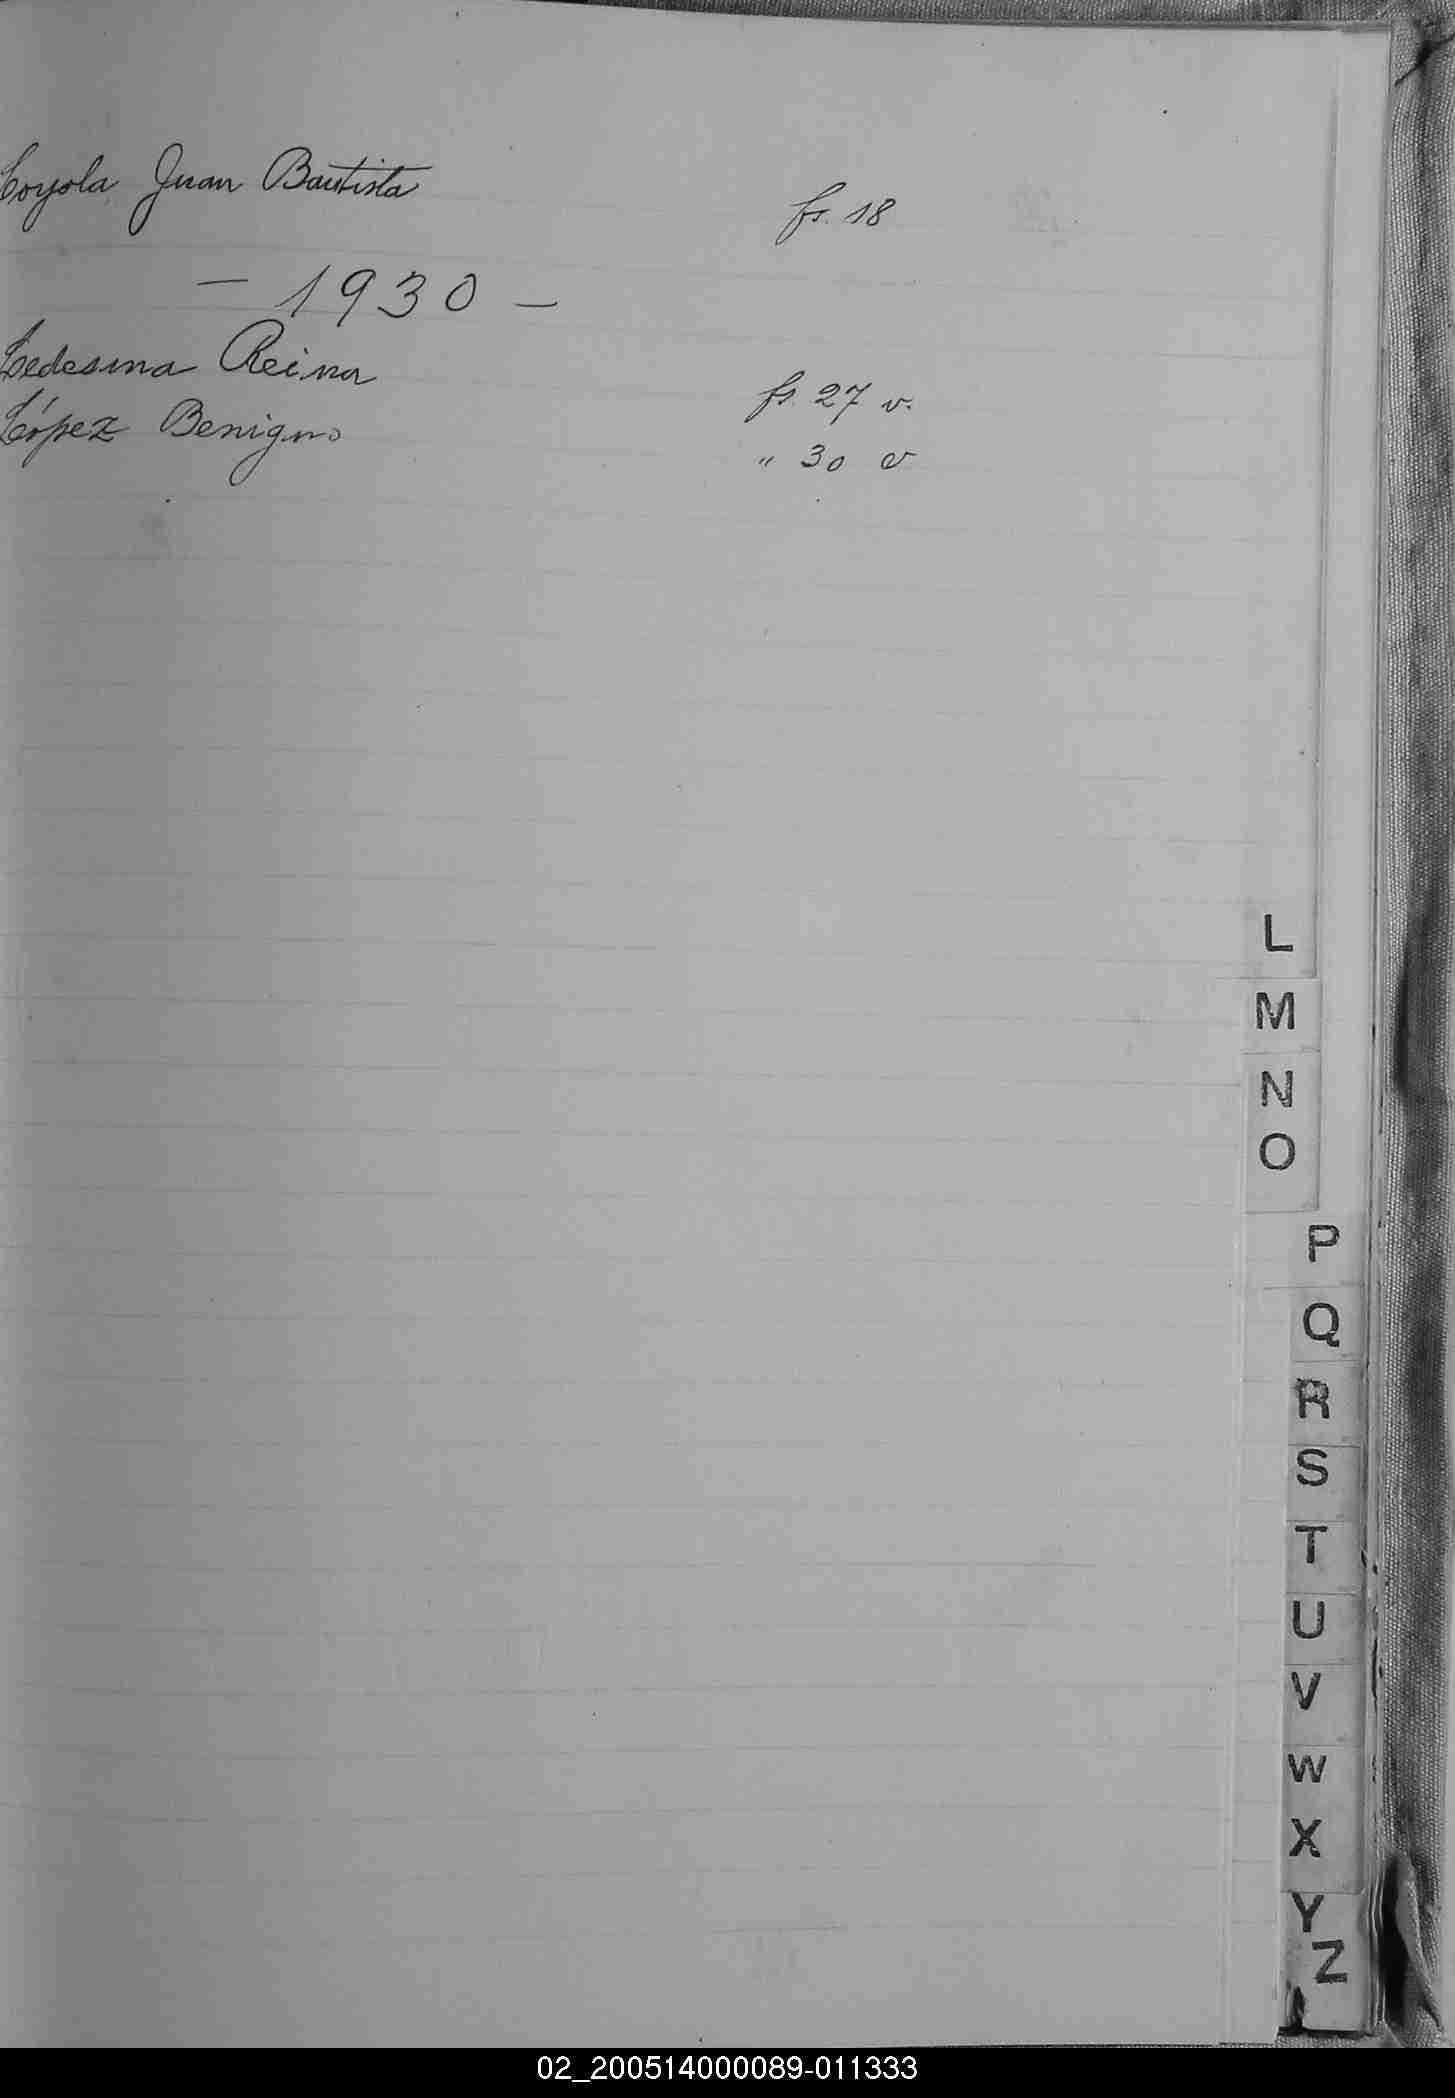 Loyola Juan Bautista fs. 18
— 1930 —
Ledesma Reina fs. 27 v.
López Benigno " 30 v
L
M
N
O
P
Q
R
S
T
U
V
W
X
Y
Z
02_200514000089-011333